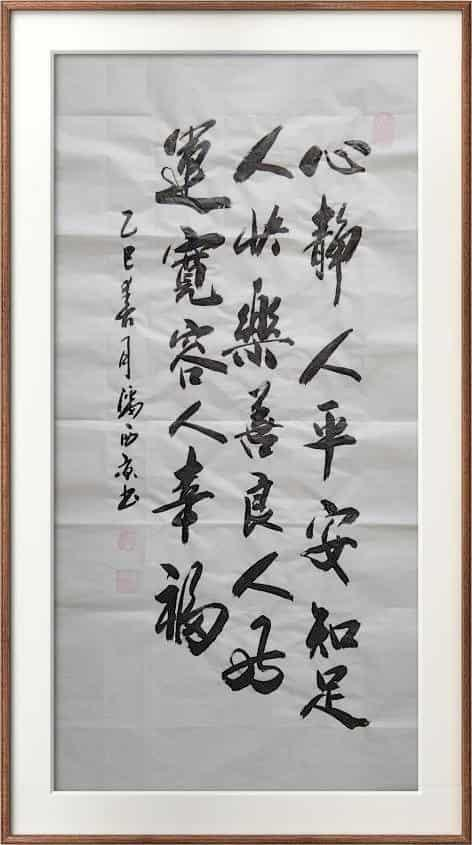 心靜人平安知足
人快樂善良人好
運寬容人幸福
乙巳春月馮西京书